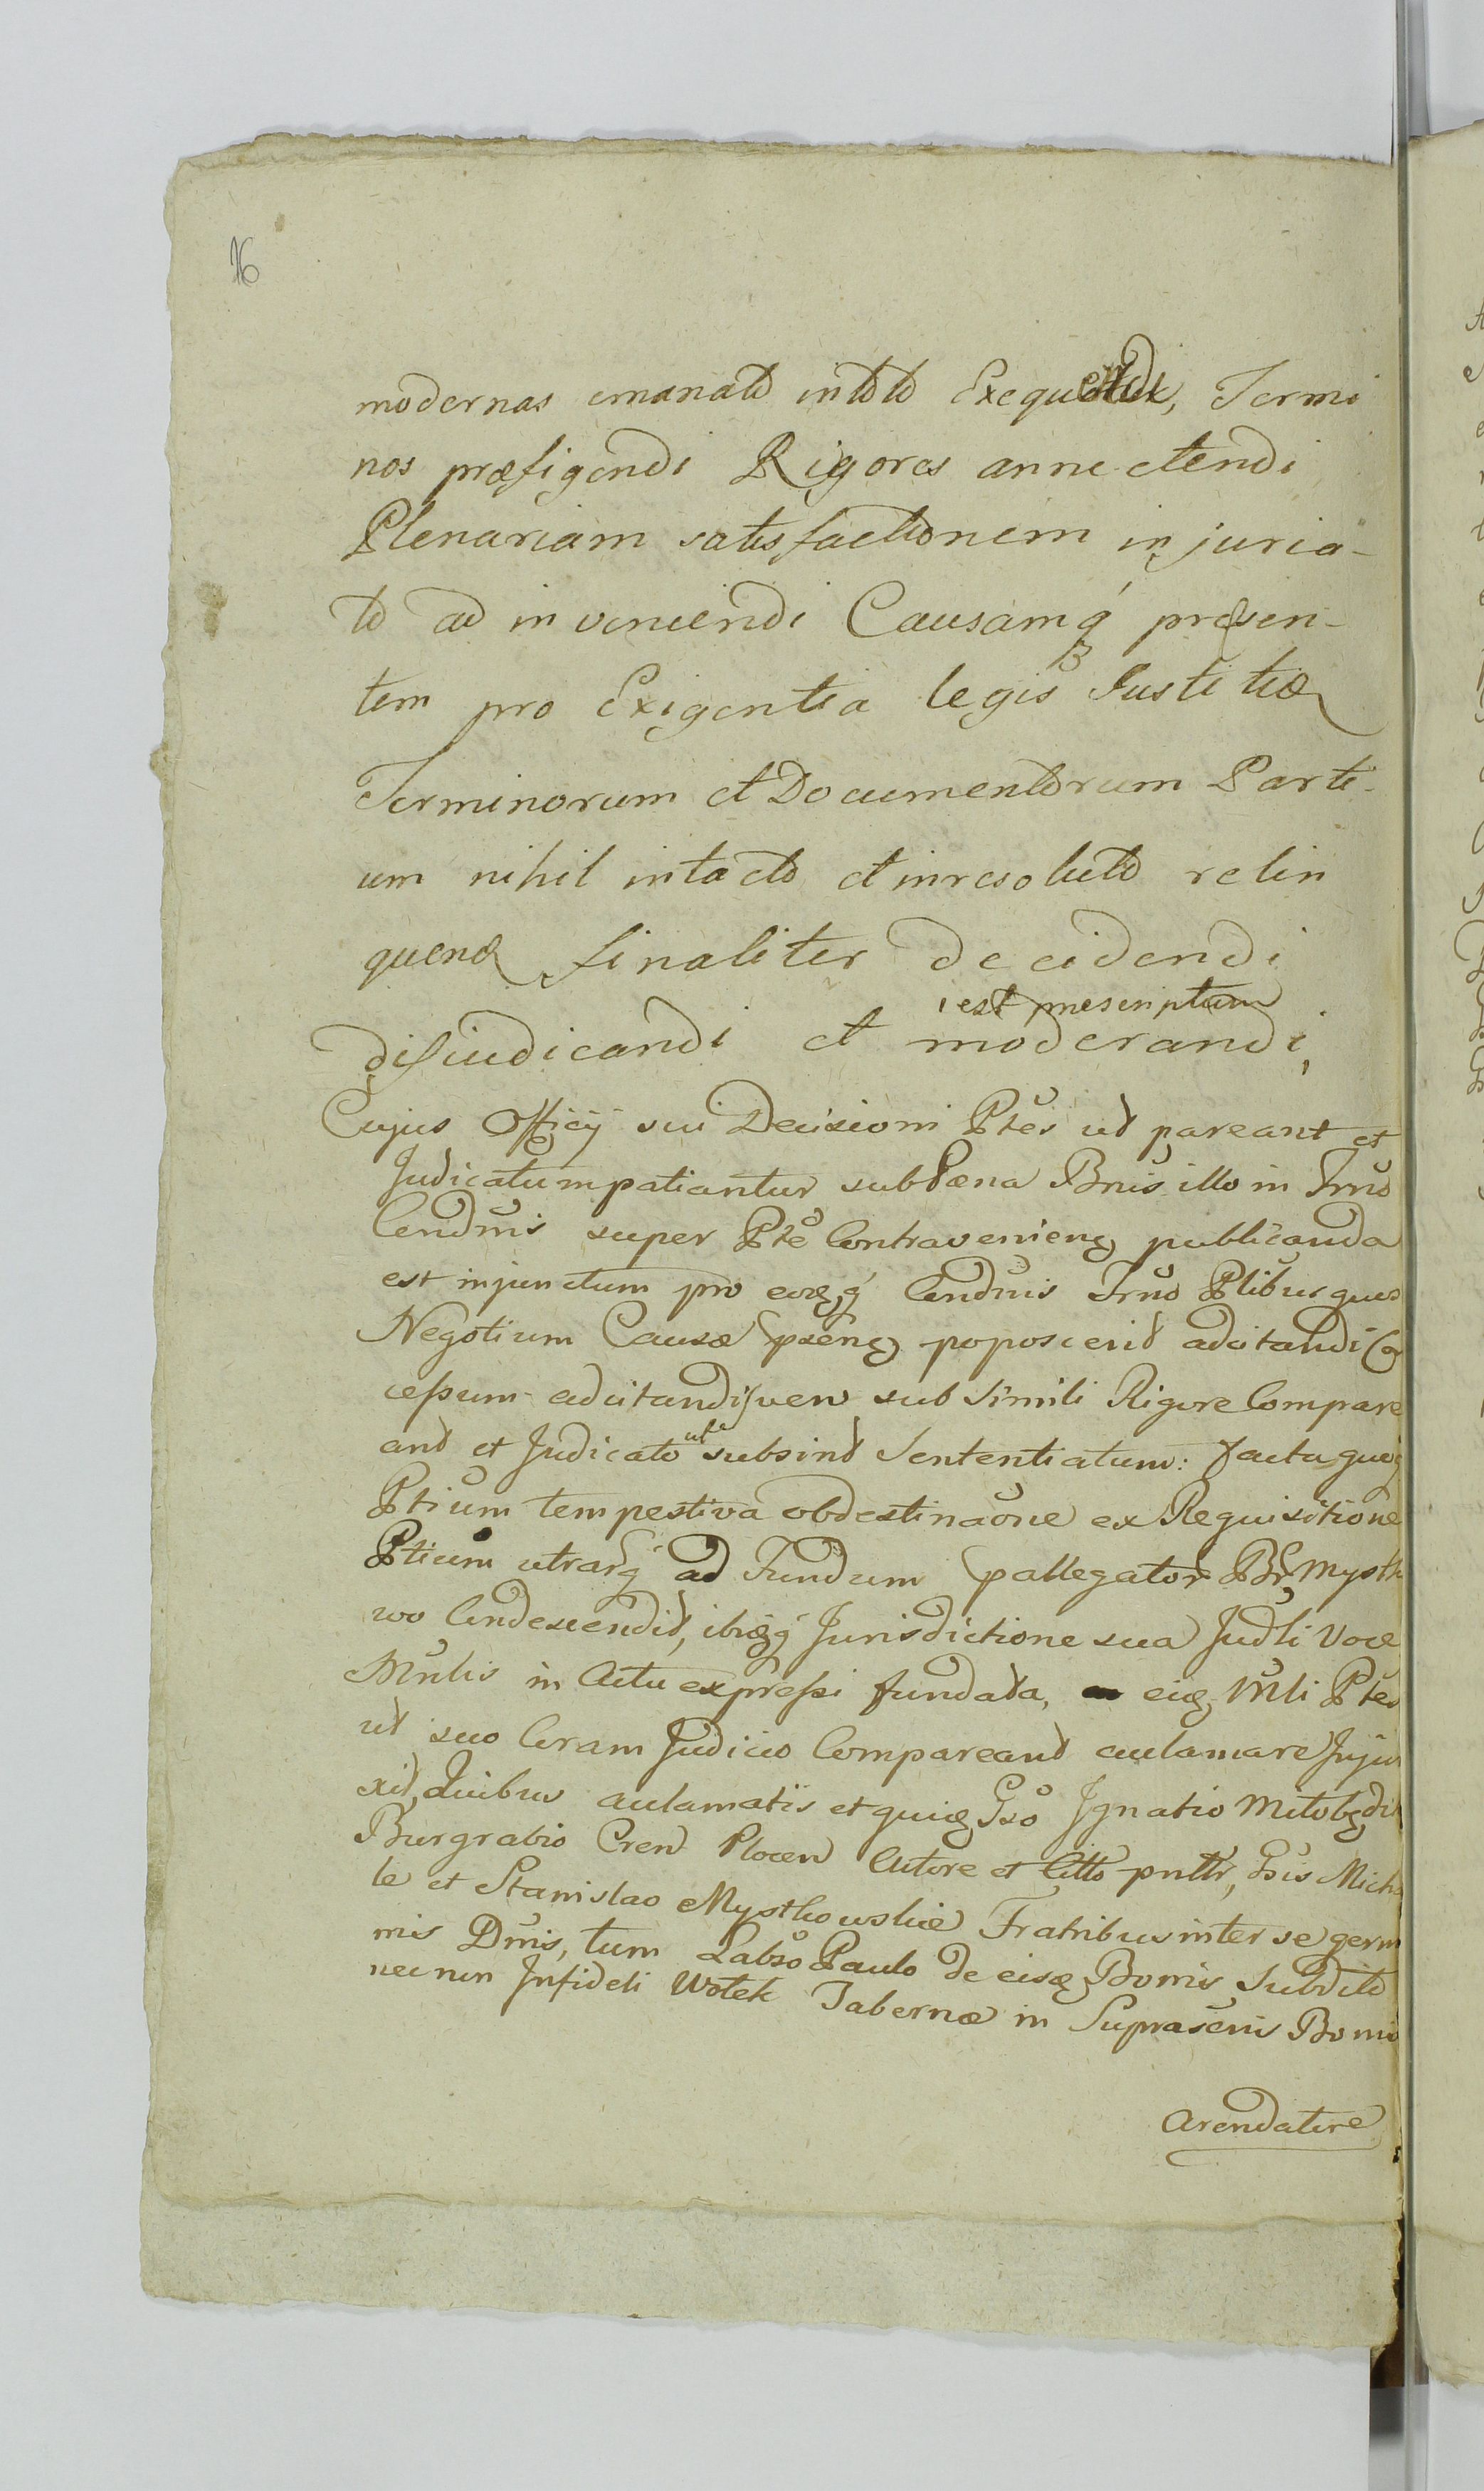 16
modernas emanato in toto Exequendi, Termi
nos præfigendi Rigores annectendi
Plenariam satisfactionem injuria-
to ad inveniendi Causamq́ præsen-
tem pro Exigentia legis Justitiæ
Terminorum et Documentorum Parti-
um nihil intacto et inresoluto relin
quen finaliter decidendi
est præscriptum
disiudicandi et moderandi,
Cujus Officij sui Decisioni Ptes ut pareant et
Judicatum patiantur sub Pæna Bnis illo in Trno
Condnis super Pte Contravenien publicanda
est injunctum pro Condnis Trno Ptibus quos
Negotium Causæ pñen poposcerit adcitandi
cessum adcitandi vero sub simili Rigore Compare
ant et Judicato subsint Sententiatum: facta
Ptium tempestiva obdestinaone ex Requisitione
Ptium utrarq́ ad Fundum Mystk
wo Condescendit, ibiq́ Jurisdictione sua Judli Voce
Mnlis in Actu expressi fundata, Mli Ptes
ut suo Coram Judicio Compareant aclamare Injun
xit, Quibus aclamatis et Gso Ignatio
Burgrabio Cren Plocen Actore et Citto pnttr, Gsis Micha
le et Stanislao Mystkowskie Fratribus inter se germ
nis Dnis, tum Labso Paulo de Bonis Subdito
necnon Infideli Wolek Tabernæ in Suprascnis Bonis
Arendatore